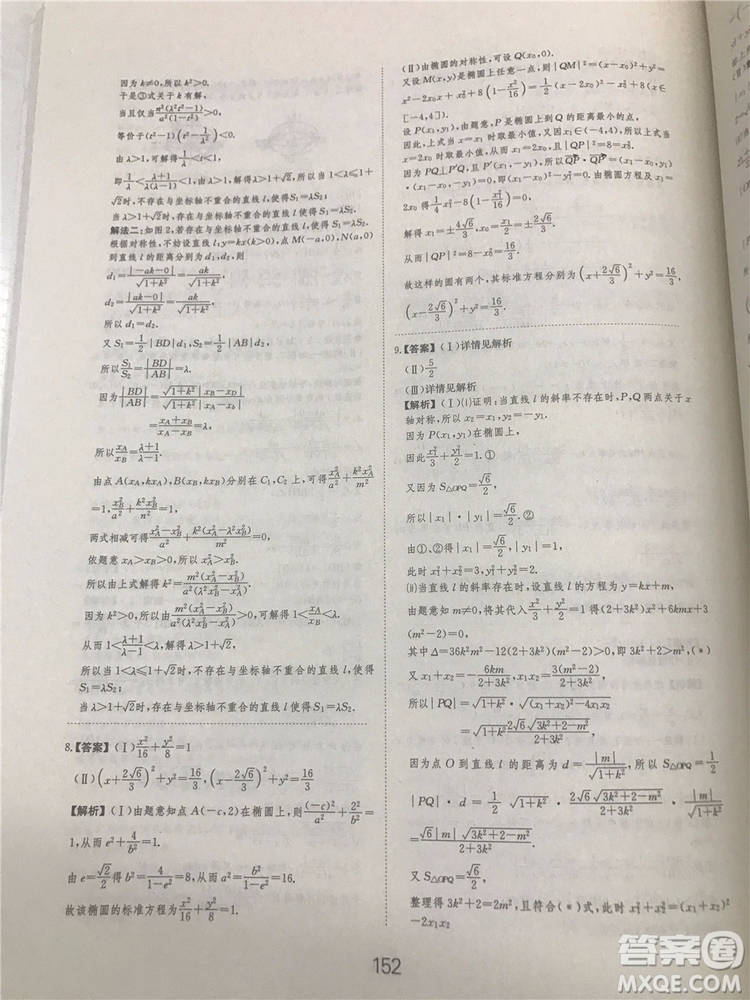 因为 k≠0，所以 k²>0.
于是③式关于 k 有解，
当且仅当 \frac{n²(λ²t²-1)}{a²(1-t²)}>0，
等价于(t²-1)(t²-\frac{1}{λ²})<0.
由 λ>1，可解得 \frac{1}{λ}<t<1，
即 \frac{1}{λ}<\frac{λ+1}{λ(λ-1)}<1，由 λ>1，解得 λ>1+√2，所以当 1<λ≤1+
√2 时，不存在与坐标轴不重合的直线 l，使得 S₁=λS₂；
当 λ>1+√2时，存在与坐标轴不重合的直线 l 使得 S₁=λS₂.
解法二：如图 2，若存在与坐标轴不重合的直线 l，使得 S₁=λS₂.
根据对称性，不妨设直线 l，y=kx(k>0)，点 M(-a,0)，N(a,0)
到直线 l 的距离分别为 d₁,d₂，则
d₁=\frac{|-ak-0|}{\sqrt{1+k²}}=\frac{ak}{\sqrt{1+k²}}，
d₂=\frac{|ak-0|}{\sqrt{1+k²}}=\frac{ak}{\sqrt{1+k²}}，
所以 d₁=d₂.
又 S₁=\frac{1}{2}|BD|d₁,S₂=\frac{1}{2}|AB|d₂，
所以 \frac{S₁}{S₂}=|\frac{BD}{AB}|=λ.
因为 |\frac{BD}{AB}|=\frac{\sqrt{1+k²}|x_B-x_D|}{\sqrt{1+k²}|x_A-x_b|}
=\frac{x_A+x_B}{x_A-x_B}=λ，
所以 \frac{x_A}{x_B}=\frac{λ+1}{λ-1}.
由点 A(x_A,kx_A)，B(x_B,kx_B)分别在 C₁,C₂ 上，可得 \frac{x_A²}{a²}+\frac{k²x_A²}{m²}
=1，\frac{x_B²}{a²}+\frac{k²x_B²}{n²}=1，
两式相减可得 \frac{x_A²-x_B²}{a²}+\frac{k²(x_A²-λ²x_B²)}{m²}=0，
依题意 x_A>x_B>0，所以 x_A²>x_B².
所以由上式解得 k²=\frac{m²(x_A²-x_B²)}{a²(λ²x_B²-x_A²)}.
因为 k²>0，所以由 \frac{m²(x_A²-x_B²)}{a²(λ²x_B²-x_A²)}>0，可解得 1<\frac{x_A}{x_B}<λ.
从而 1<\frac{λ+1}{λ-1}<λ，解得 λ>1+√2，
所以当 1<λ≤1+√2时，不存在与坐标轴不重合的直线 l，使得
S₁=λS₂；
当 λ>1+√2时，存在与坐标轴不重合的直线 l，使得 S₁=λS₂.
8.【答案】（Ⅰ）\frac{x²}{16}+\frac{y²}{8}=1
（Ⅱ）(x+\frac{2√6}{3})²+y²=\frac{16}{3}，(x-\frac{2√6}{3})²+y²=\frac{16}{3}
【解析】（Ⅰ）由题意知点 A(-c,2)在椭圆上，则\frac{(-c)²}{a²}+\frac{2²}{b²}=
1，从而 e²+\frac{4}{b²}=1.
由 e=\frac{√2}{2}得 b²=\frac{4}{1-e²}=8，从而 a²=\frac{b²}{1-e²}=16.
故该椭圆的标准方程为\frac{x²}{16}+\frac{y²}{8}=1.
（Ⅱ）由椭圆的对称性，可设 Q(x₀,0).
又设 M(x,y)是椭圆上任意一点，则|QM|²=(x-x₀)²+y²=
x²-2x₀x+x₀²+8(1-\frac{x²}{16})=\frac{1}{2}(x-2x₀)²-x₀²+8(x∈
[-4,4]).
设 P(x₁,y₁)，由题意，P 是椭圆上到 Q 的距离最小的点，
因此，上式当 x=x₁ 时取最小值，又 x₁∈(-4,4)，所以上式当 x=
2x₀ 时取最小值，从而 x₁=2x₀，且|QP|²=8-x₀².
因为 PQ⊥P′Q，且 P′(x₁,-y₁)，所以
2x₀ 得 \frac{1}{4}x₁²-8(1-\frac{x₁²}{16})=0，
解得 x₁=±\frac{4√6}{3}，x₀=\frac{x₁}{2}=±\frac{2√6}{3}.
从而|QP|²=8-x₀²=\frac{16}{3}.
故这样的圆有两个，其标准方程分别为 (x+\frac{2√6}{3})²+y²=\frac{16}{3}，
(x-\frac{2√6}{3})²+y²=\frac{16}{3}.
9.【答案】（Ⅰ）详情见解析
（Ⅱ）\frac{5}{2}
（Ⅲ）详情见解析
【解析】（Ⅰ）(ⅰ)证明：当直线 l 的斜率不存在时，P,Q 两点关于 x
轴对称，所以 x₂=x₁,y₂=-y₁.
因为 P(x₁,y₁)在椭圆上，
因此\frac{x₁²}{3}+\frac{y₁²}{2}=1.①
又因为 S△OPQ=\frac{√6}{2}，
所以|x₁|·|y₁|=\frac{√6}{2}.②
由①、②得|x₁|=\frac{√6}{2}，|y₁|=1.
此时 x₁²+x₂²=3，y₁²+y₂²=2.
(ⅱ)当直线 l 的斜率存在时，设直线 l 的方程为 y=kx+m，
由题意知 m≠0，将其代入\frac{x²}{3}+\frac{y²}{2}=1 得(2+3k²)x²+6kmx+3
(m²-2)=0，
其中 Δ=36k²m²-12(2+3k²)(m²-2)>0，即 3k²+2>m²，(*)
又 x₁+x₂=-\frac{6km}{2+3k²}，x₁x₂=\frac{3(m²-2)}{2+3k²}，
所以|PQ|=\sqrt{1+k²}·\sqrt{(x₁+x₂)²-4x₁x₂}
=\sqrt{1+k²}\frac{2√6\sqrt{3k²+2-m²}}{2+3k²}，
因为点 O 到直线 l 的距离为 d=\frac{|m|}{\sqrt{1+k²}}，所以 S△OPQ=\frac{1}{2}
|PQ|·d=\frac{1}{2}\sqrt{1+k²}·\frac{2√6\sqrt{3k²+2-m²}}{2+3k²}·\frac{|m|}{\sqrt{1+k²}}
=\frac{√6|m|\sqrt{3k²+2-m²}}{2+3k²}.
又 S△OPQ=\frac{√6}{2}，
整理得 3k²+2=2m²，且符合(*)式，此时 x₁²+x₂²=(x₁+x₂)²
-2x₁x₂
152
答案圈
MXQE.COM